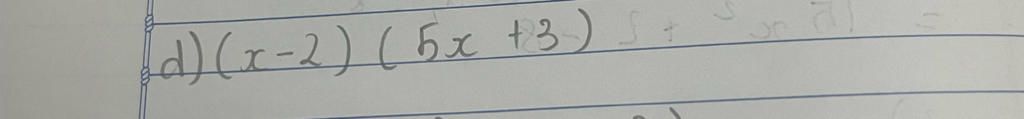 d) (x-2) (5x +3)